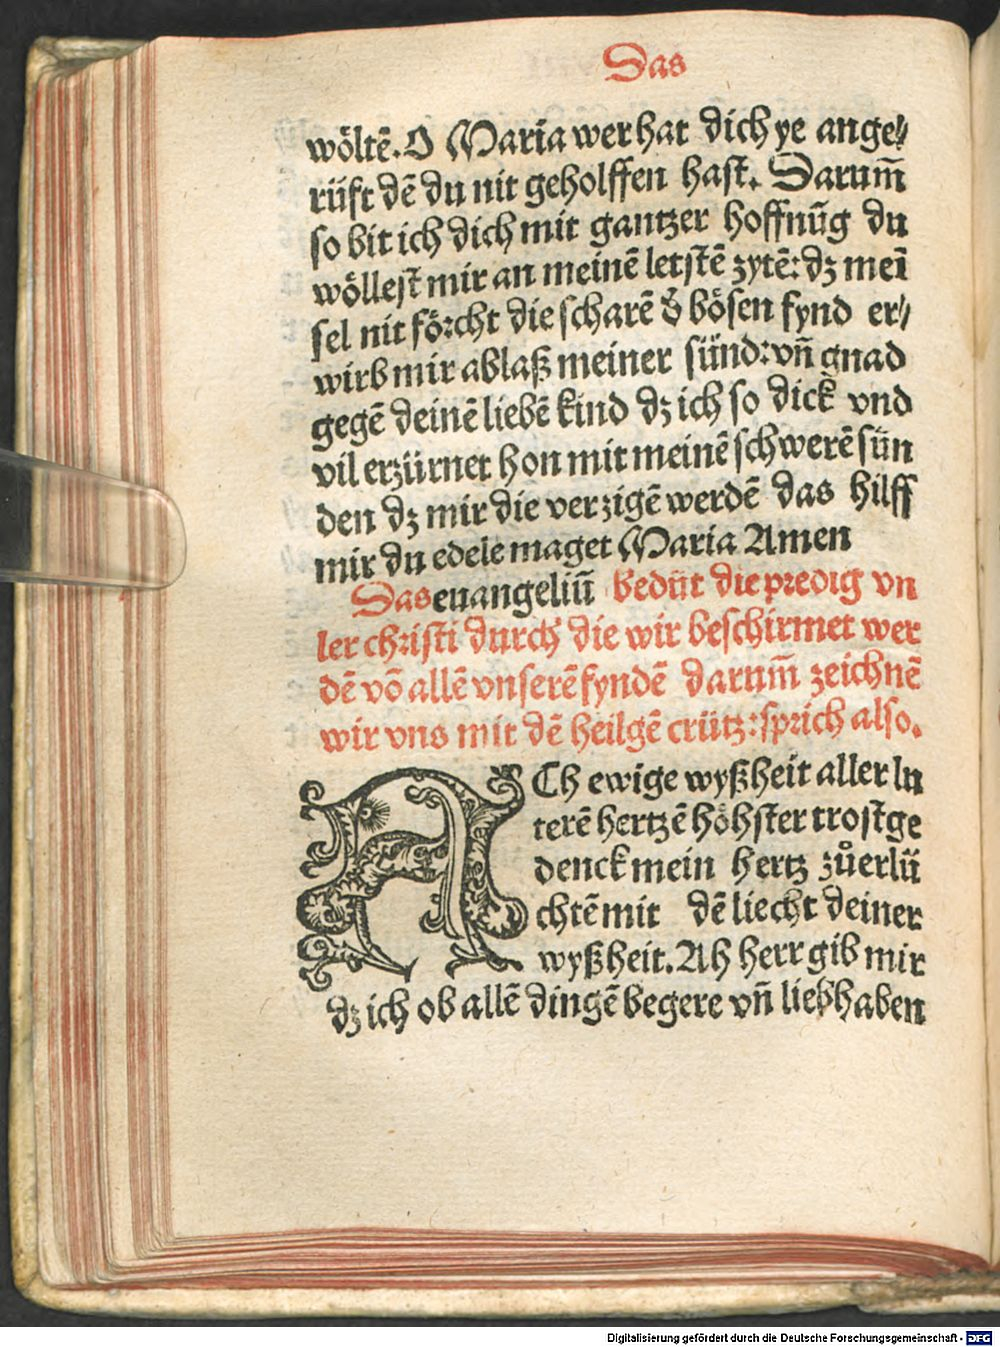 Das
wöltē. O Maria wer hat dich ye ange⸗
rüft dē du nit geholffen hast. Darum̄
so bit ich dich mit gantzer hoffnūg du
wöllest mir an meinē letstē zytē: dz meī
sel nit förcht die scharē d̕ bösen fynd er⸗
wirb mir ablaß meiner sünd: vn̄ gnad
gegē deinē liebē kind dz ich so dick vnd
vil erzürnet hon mit meinē schwerē sün
den dz mir die verzigē werdē das hilff
mir du edele maget Maria Amen
Das euangeliū bedüt die predig vn
ser christi durch die wir beschirmet wer
dē vō allē vnserē fyndē darum̄ zeichnē
wir vns mit dē heilgē crütz: sprich also.
ACh ewige wyßheit aller lu
terē hertzē höhster trost ge
denck mein hertz zůerlü
chtē mit dē liecht deiner
wyßheit. Ah herr gib mir
dz ich ob allē dingē begere vn̄ liebhaben
Digitalisierung gefördert durch die Deutsche Forschungsgemeinschaft - DFG